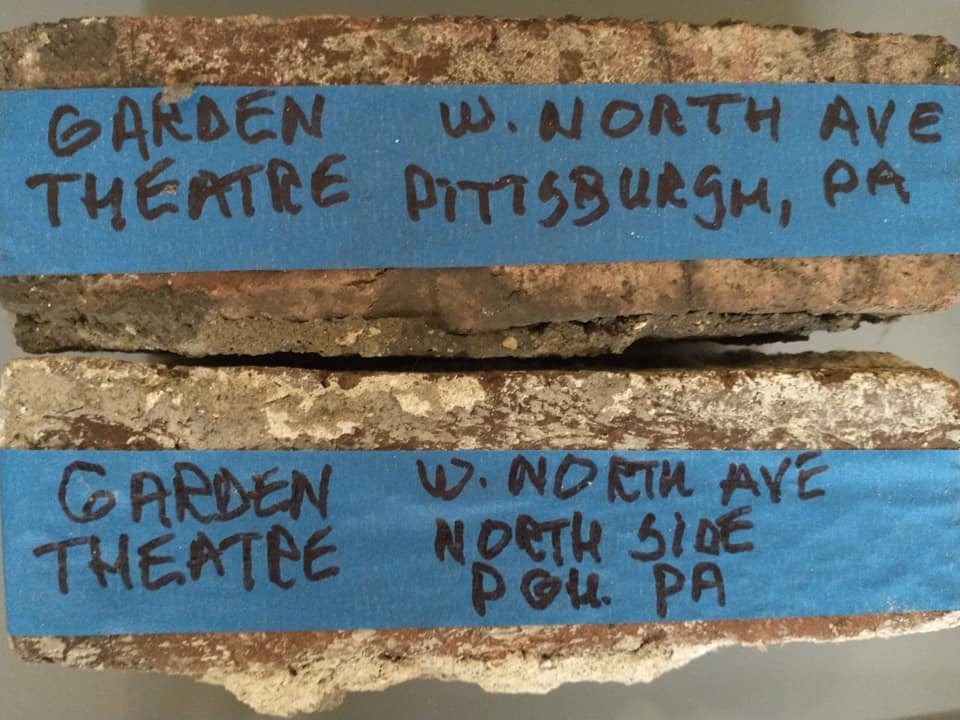 GARDEN W. NORTH AVE
THEATRE PITTSBURGH, PA
GARDEN W. NORTH AVE
THEATRE NORTH SIDE
PGH. PA